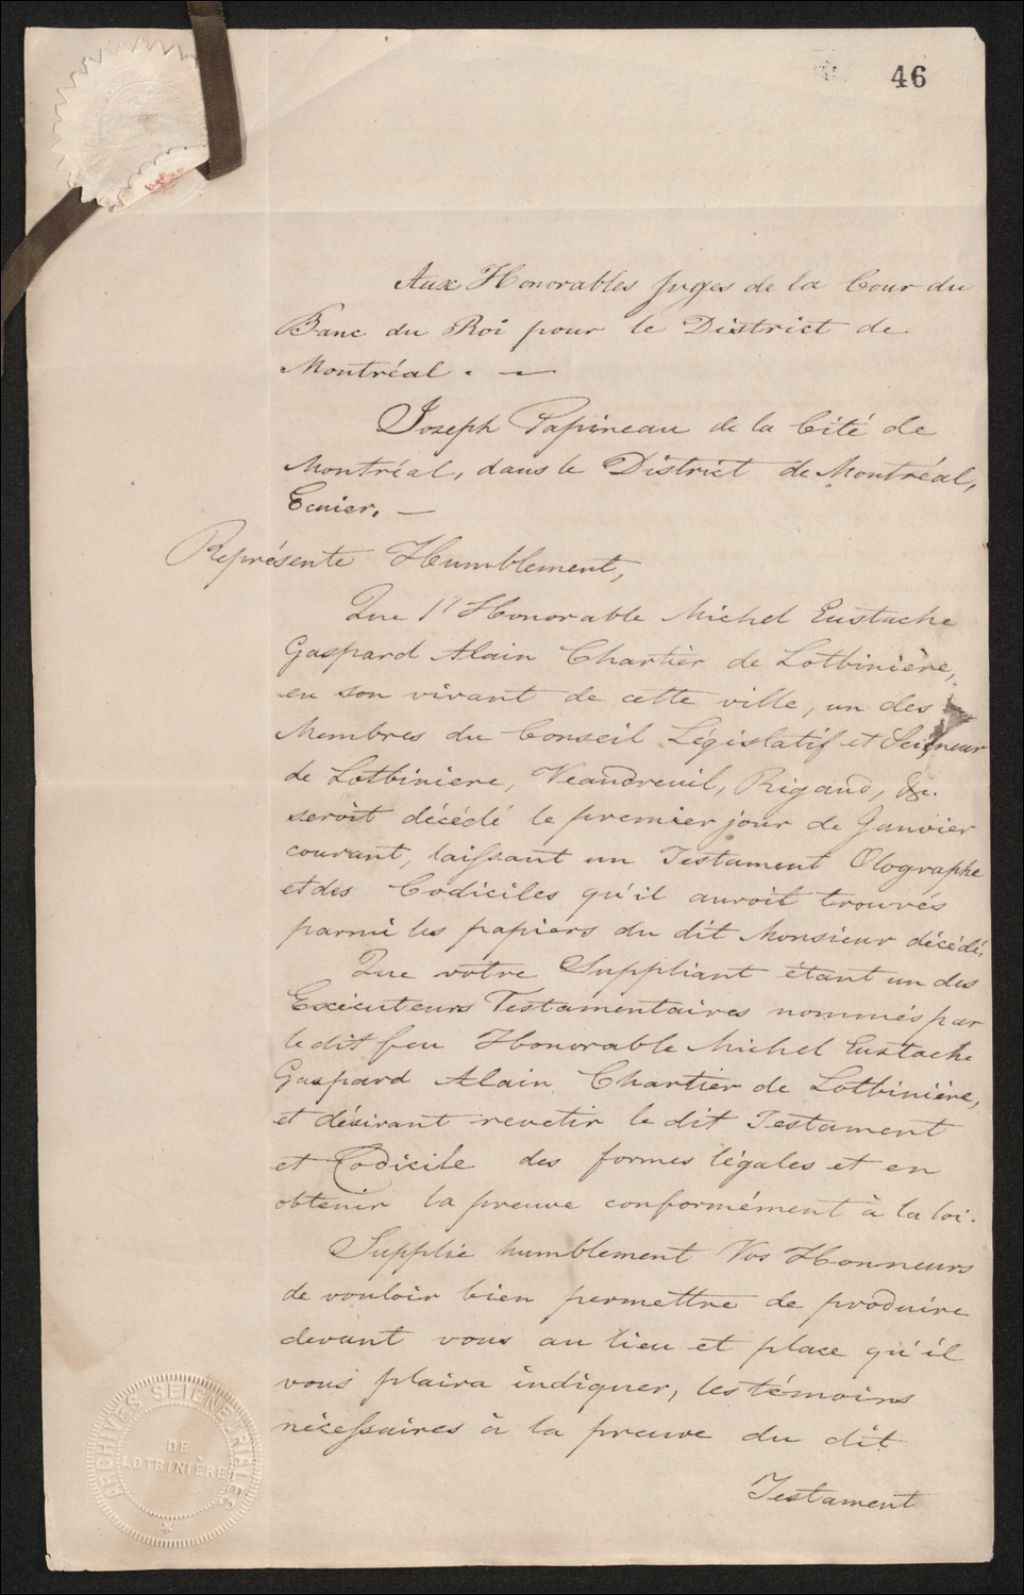 46
Aux Honorables Juges de la Cour du
Banc du Roi pour le District de
Montréal. —
Joseph Papineau de la Cité de
Montréal, dans le District de Montréal,
Ecuier. —
Représente Humblement,
Que l'Honorable Michel Eustache
Gaspard Alain Chartier de Lotbinière,
en son vivant de cette ville, un des
Membres du Conseil Législatif et Seigneur
de Lotbiniere, Veaudreuil, Rigaud, &c.
seroit décédé le premier jour de Janvier
courant, laissant un Testament Olographe
et des Codiciles qu'il auroit trouvés
parmi les papiers du dit Monsieur décédé.
Que votre Suppliant étant un des
Exécuteurs Testamentaires nommés par
le dit feu Honorable Michel Eustache
Gaspard Alain Chartier de Lotbinière,
et désirant revetir le dit Testament
et Codicile des formes légales et en
obtenir la preuve conformément à la loi.
Supplie humblement Vos Honneurs
de vouloir bien permettre de produire
devant vous au lieu et place qu'il
vous plaira indiquer, les témoins
nécessaires à la preuve du dit
Testament
ARCHIVES SEIGNEURIALES
DE
LOTBINIÈRE